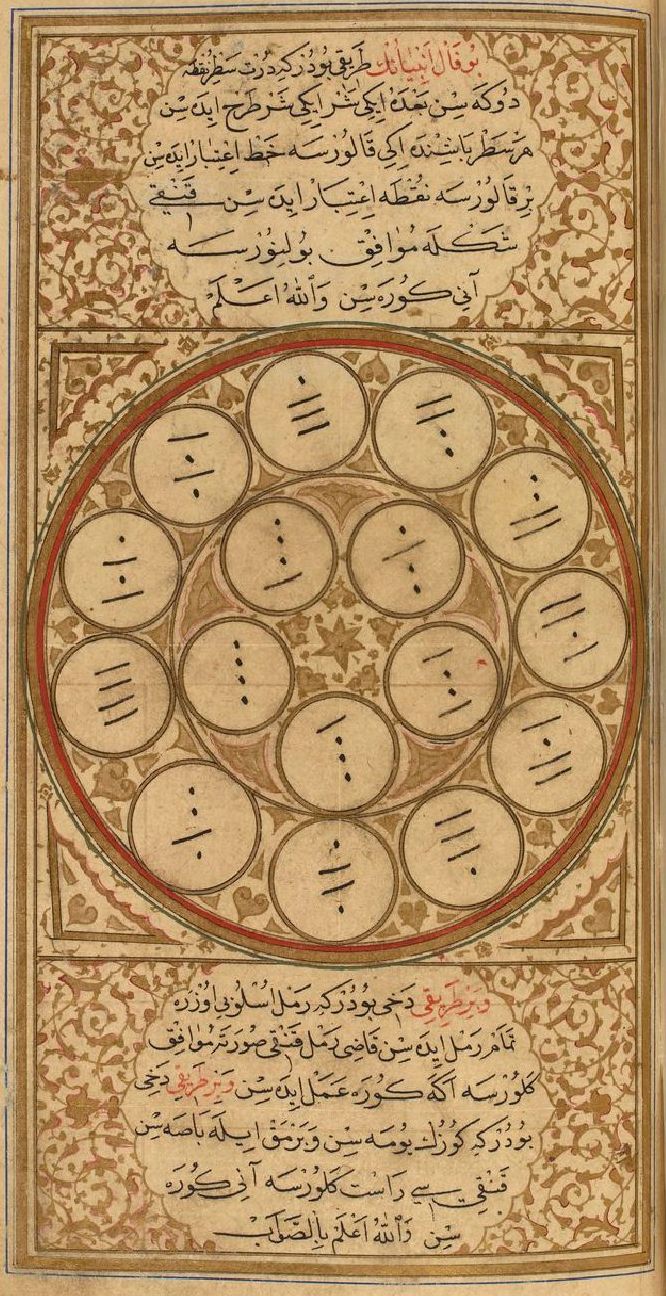 بُو فَالِ اَنْبِيَانُكْ طَرِيقِى بُودُرْ كِه دُرْت سَطِرْ نُقْطَه
دُوكَه سِنْ بَعْدَهُ اِيكِى شَرْ اِيكِى شَرْ طَرْح اِيدَه سِنْ
هَرْ سَطْر بَاشِنْدَه اِكِى قَالُورْسَه خَط اِعْتِبَار اِيدَه سِنْ
بِرْ قَالُورْسَه نُقْطَه اِعْتِبَارْ اِيدَه سِنْ قَنْقِى
شَكْلَه مُوَافِقْ بُولِنُورْسَه
آنِى كُورَه سِنْ وَاللّٰهُ اَعْلَمْ
وَبِرْ طَرِيقِى دَخِى بُودُرْ كِه رَمْل اُسْلُوبِى اُوزْرَه
تَمَامْ رَمْل اِيدَه سِنْ قَاضِى رَمْل قَنْقِى صُورَتَه مُوَافِقْ
كَلُورْسَه اَكَه كُورَه عَمَل اِيدَه سِنْ وَبِرْ طَرِيقِى دَخِى
بُودُرْ كِه كُوزُكْ يُومَه سِنْ وَبَرْمَقْ اِيلَه بَاصَه سِنْ
قَنْقِيسِى رَاسْت كَلُورْسَه آنِى كُورَه
سِنْ وَاللّٰهُ اَعْلَمْ بِالصَّوَابْ